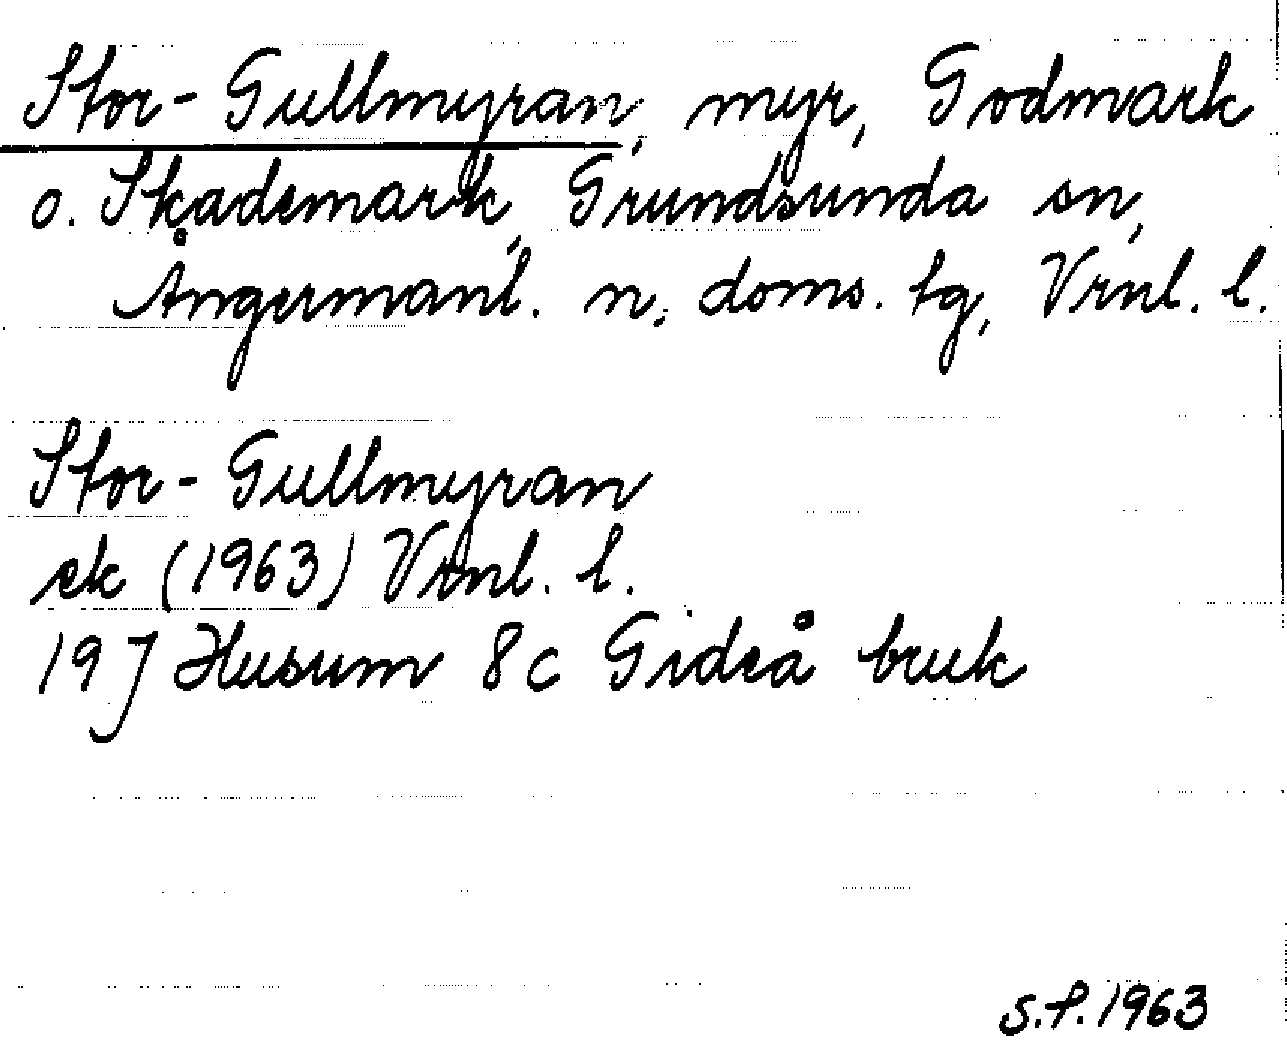 Stor-Gullmyran, myr, Godmark
o. Skademark, Grundsunda sn,
Ångermanl. n. doms. tg, Vrnl. l.
Stor-Gullmyran
ek (1963) Vrnl. l.
19 J Husum 8c Gideå bruk
S.P. 1963